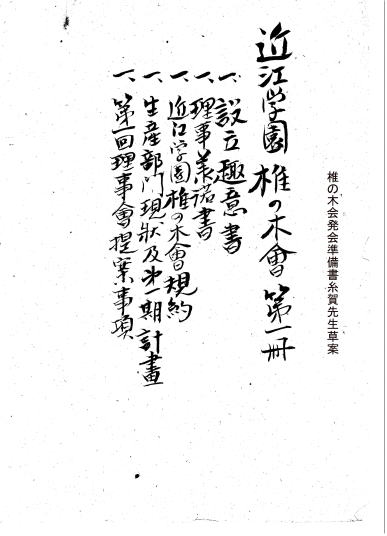 椎の木会発会準備書糸賀先生草案
近江学園 椎の木會 第一冊
一、設立趣意書
一、理事承諾書
一、近江学園椎の木會規約
一、生産部門現狀及第一期計畫
一、第一回理事會提案事項